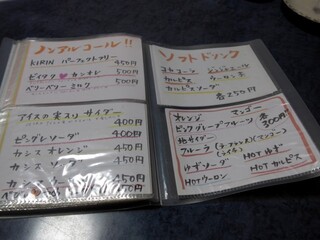 ノンアルコール!!
KIRIN パーフェクトフリー 450円
ピンク カシオレ 500円
ベリーベリーミルク 500円
アイスの実スリーサイダー 400円
ピングレソーダ 400円
カシスオレンジ 450円
カシスソーダ 450円
カ
ソフトドリンク
コカコーラ ジンジャエール
カルピス ウーロン茶
カルピスソーダ
各250円
オレンジ マンゴー
ピンクグレープフルーツ 各300円
地サイダー
フルーラ (マンゴー)
(ライチ)
ゆずソーダ HOTゆず
HOTウーロン HOTカルピス